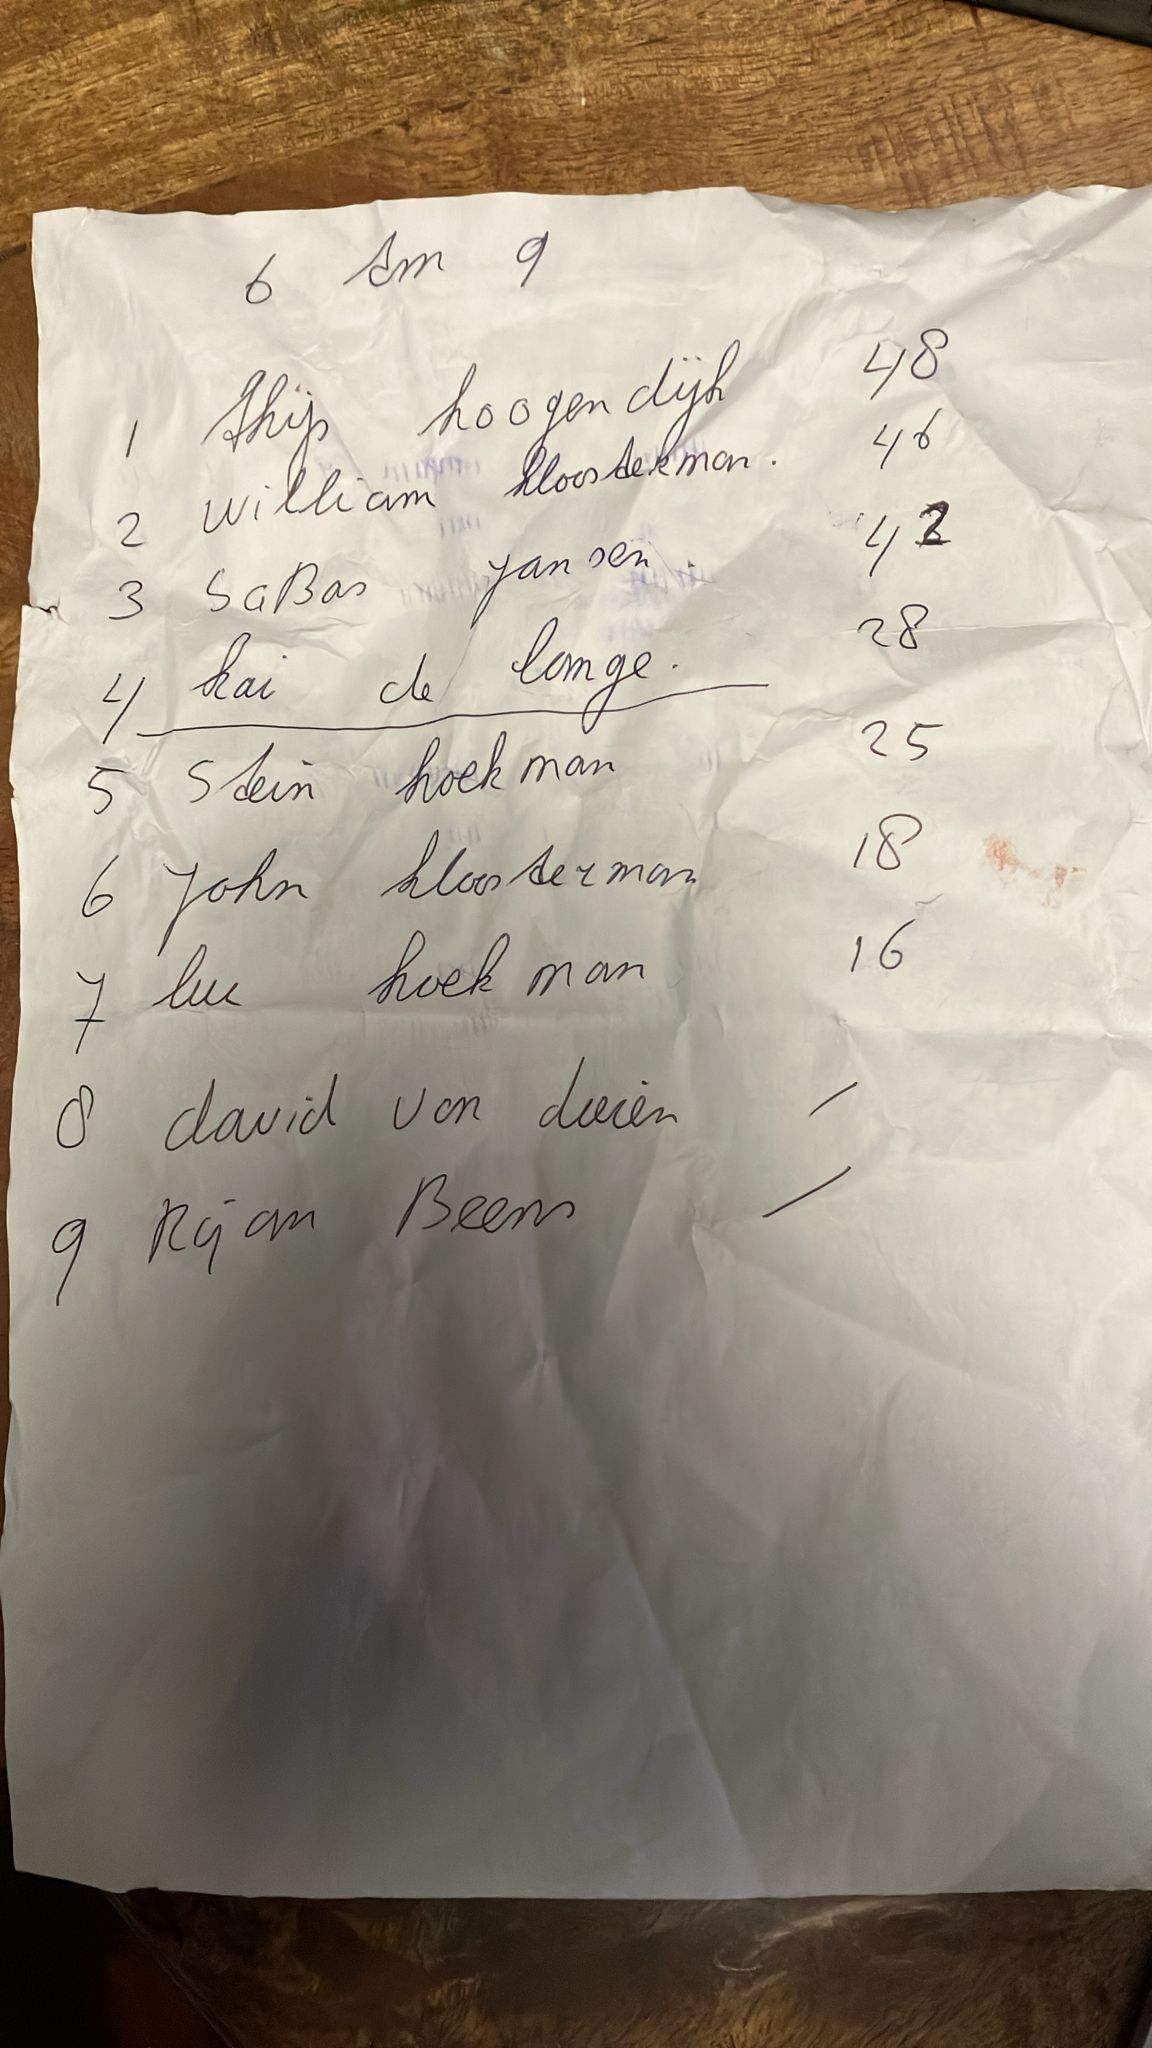 6 tm 9
1 Thijs hoogendijk 48
2 William kloosterman. 46
3 SaBas Jansen. 42
4 kai de lange. 28
5 Stein hoekman 25
6 John kloosterman 18
7 luc hoekman 16
8 david van /
9 Rijan Beens /